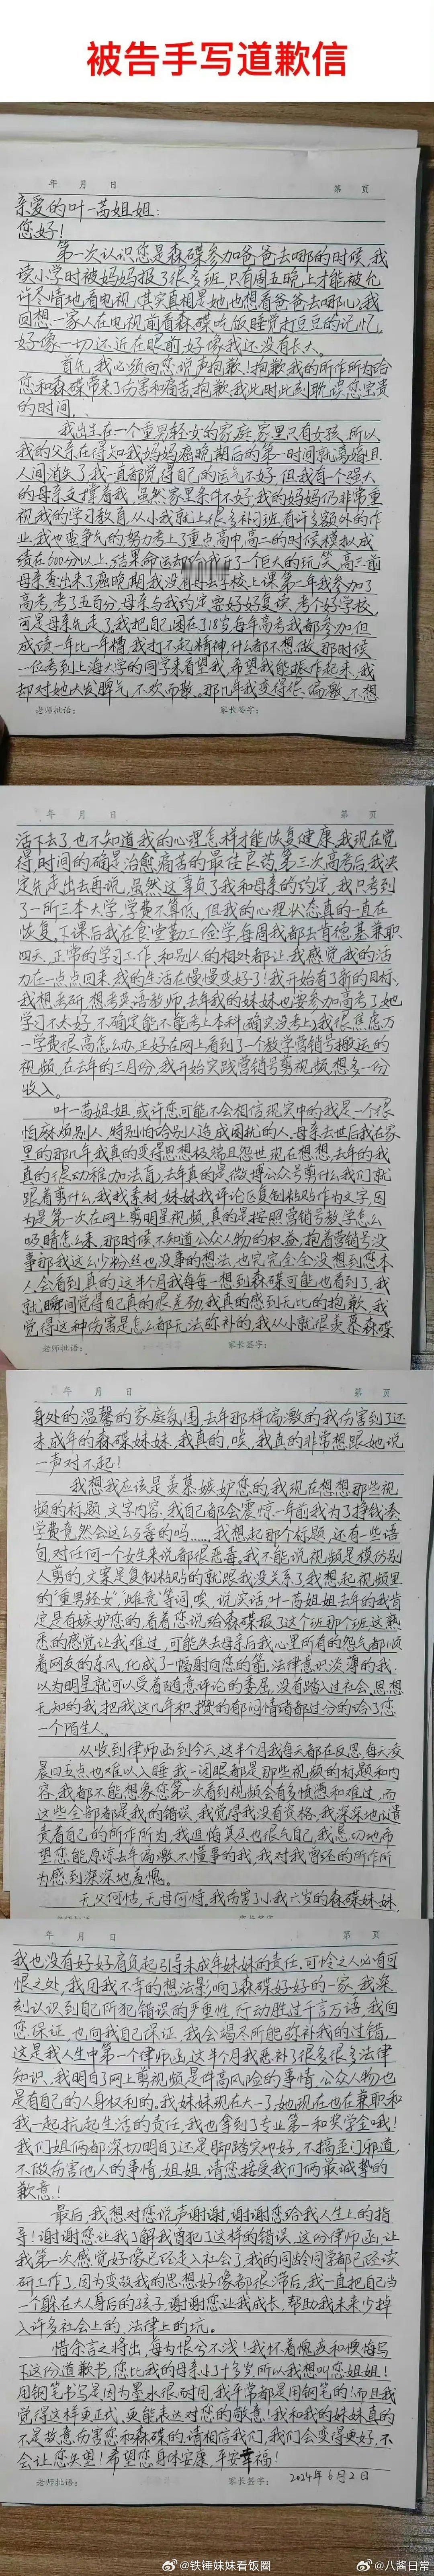 被告手写道歉信
年 月 日 第 页
亲爱的叶一茜姐姐：
您好！
第一次认识您是森碟参加爸爸去哪的时候，我
读小学时被妈妈报了很多班，只有周五晚上才能被允
许尽情地看电视，（其实真相是她也想看爸爸去哪儿）我
回想一家人在电视前看森碟吃饭睡觉打豆豆的记忆，
好像一切还近在眼前，好像我还没有长大。
首先，我必须向您说声抱歉！抱歉我的所作所为给
您和森碟带来了伤害和痛苦，抱歉我此时此刻耽误您宝贵
的时间。
我出生在一个重男轻女的家庭，家里只有女孩，所以
我的父亲在得知我妈妈癌晚期后的第一时间就离婚且
人间消失了，我一直都觉得自己的运气不好，但我有一个强大
的母亲支撑着我，虽然家里条件不好，我的妈妈仍非常重
视我的学习教育，从小我就上很多补习班，有许多额外的作
业，我也蛮争气的努力考上了重点高中，高一的时候模拟成
绩在600分以上，结果命运去给我开了一个巨大的玩笑，高三前
母亲查出来了癌晚期，我没有回去学校上课，第二年我参加了
高考，考了五百分，母亲与我约定要好好复读，考个好学校，
可是母亲先走了，我把自己困在了18岁，每年高考我都参加，但
成绩一年比一年糟，我打不起精神，什么都不想做，那时候
一位考到上海大学的同学来看望我，希望我能振作起来，我
却对她大发脾气，不欢而散。那几年我变得很偏激，不想
老师批语： 家长签字：
年 月 日 第 页
活下去了，也不知道我的心理怎样才能恢复健康，我现在觉
得，时间的确是治愈痛苦的最佳良药，第三次高考后，我决
定先走出去再说，虽然这辜负了我和母亲的约定，我只考到
了一所三本大学，学费不算低，但我的心理状态真的一直在
恢复，下课后我在食堂勤工俭学，每周我都去肯德基兼职
四天，正常的学习工作，和别人的相处都让我感觉我的活
力在一点点回来，我的生活在慢慢变好了！我开始有了新的目标，
我想考研，想考英语教师，去年我的妹妹也要参加高考了，她
学习不太好，不确定能不能考上本科（确实没考上）我很焦虑，万
一学费很高怎么办，正好在网上看到了一个教学营销号搬运的
视频，在去年的三月份，我开始实践营销号剪视频，想多一份
收入。
叶一茜姐姐，或许您可能不会相信，现实中的我是一个很
怕麻烦别人，特别怕给别人造成困扰的人。母亲去世后我在家
里的那几年我真的变得思想极端且怨世，现在想想，去年的我
真的很幼稚加法盲，去年真的是微博公众号剪什么，我们就
跟着剪什么，我找素材，妹妹找评论区复制粘贴作为文字，因
为是第一次在网上剪明星视频，真的是按照营销号教学怎么
吸睛怎么来，那时候不知道公众人物的权益，抱着营销号没
事那我这么少粉丝也没事的想法，也完完全全没想到您本
人会看到，真的，这半个月我每每一想到森碟可能也看到了，我
就瞬间觉得自己真的很差劲，我真的感到无比的抱歉，我
觉得这种伤害是怎么都无法弥补的，我从小就很羡慕森碟
老师批语： 家长签字：
年 月 日 第 页
身处的温馨的家庭氛围，去年那样偏激的我伤害到了还
未成年的森碟妹妹，我真的，唉，我真的非常想跟她说
一声对不起！
我想我应该是羡慕嫉妒您的，我现在想想那些视
频的标题、文字内容，我自己都会震惊，一年前我为了挣钱凑
学费竟然会这么歹毒的吗……，我想起那个标题，还有一些语
句，对任何一个女生来说都很恶毒。我不能说视频是模仿别
人剪的，文案是复制粘贴的就跟我没关系了，我想起视频里
的“重男轻女”“雌竞”等词，唉，说实话，叶一茜姐姐，去年的我肯
定是有嫉妒您的，看着您说给森碟报了这个班那个班，这熟
悉的感觉让我难过，可能失去母亲后我心里所有的怨气都顺
着网友的东风，化成了一幅射向您的箭，法律意识淡薄的我，
以为明星就可以受着随意评论的委屈，没有踏入过社会、思想
无知的我，把我这几年积攒的郁闷情绪都过分的给了您
一个陌生人。
从收到律师函到今天，这半个月我每天都在反思，每天凌
晨四五点也难以入睡，我一闭眼都是那些视频的标题和内
容，我都不能想象您第一次看到视频会有多愤懑和难过，而
这些全部都是我的错误，我觉得我没有资格，我深深地谴
责着自己的所作所为，我追悔莫及，也很气自己，我恳切地希
望您能原谅去年偏激不懂事的我，我对我曾经的所作所
为感到深深地羞愧。
无父何怙，无母何恃。我伤害了小我六岁的森碟妹妹，
年 月 日 第 页
我也没有好好肩负起引导未成年妹妹的责任，可怜之人必有可
恨之处，我因我不幸的想法影响了森碟好好的一家，我深
刻认识到自己所犯错误的严重性，行动胜过千言万语，我向
您保证，也向我自己保证，我会竭尽所能弥补我的过错，
这是我人生中第一个律师函，这半个月我恶补了很多很多法律
知识，我明白了网上剪视频是件高风险的事情，公众人物也
是有自己的人身权利的。我妹妹现在大一了，她现在也在兼职和
我一起扛起生活的责任，我也拿到了专业第一和奖学金哦！
我们姐俩都深切明白了还是脚踏实地好，不搞歪门邪道，
不做伤害他人的事情，姐姐，请您接受我们俩最诚挚的
歉意！
最后，我想对您说声谢谢，谢谢您给我人生上的指
导！谢谢您让我了解我曾犯了这样的错误，这份律师函，让
我第一次感觉好像已经走入社会了，我的同龄同学都已经读
研工作了，因为变故我的思想好像都很滞后，我一直把自己当
一个躲在大人身后的孩子，谢谢您让我成长，帮助我未来少掉
入许多社会上的、法律上的坑。
惜余言之将出，每为恨兮不浅！我怀着愧疚和懊悔写
下这份道歉书，您比我的母亲小了十多岁，所以我想叫您姐姐！
用钢笔书写是因为墨水很耐用，我平常都是用钢笔的！而且我
觉得这样更正式，更能表达对您的敬意！我和我的妹妹真的
不是故意伤害您和森碟的，请相信我们，我们会变得更好，不
会让您失望！希望您身体安康，平安幸福！
老师批语： 家长签字： 2024年6月2日
@铁锤妹妹看饭圈 @八酱日常